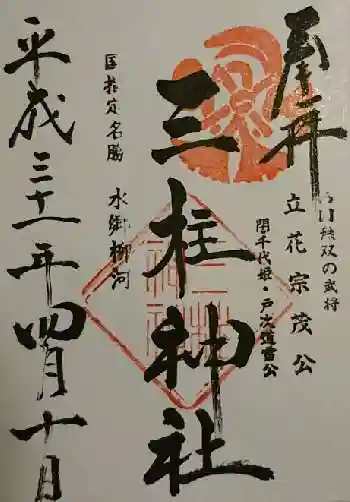 奉拝
西国無双の武将
立花宗茂公
誾千代姫・戸次道雪公
三柱神社
国指定名勝 水郷柳河
平成三十一年四月十日